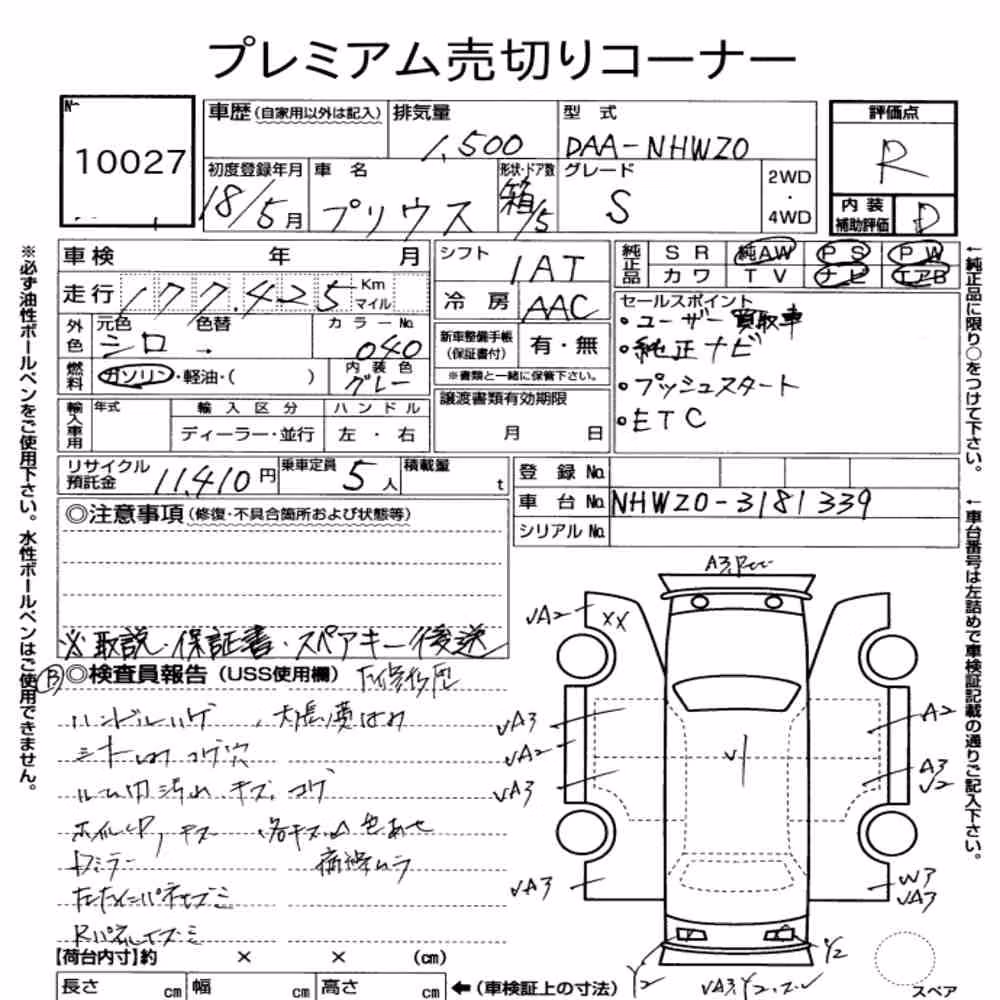 プレミアム売切りコーナー
No.
10027
車歴 (自家用以外は記入)
排気量
1,500
型式
DAA-NHW20
評価点
R
初度登録年月
18/5月
車名
プリウス
形状・ドア数
箱/5
グレード
S
2WD
・
4WD
内装
補助評価
D
車検 年 月
走行 177,425 Km マイル
シフト
IAT
冷房
AAC
純正品
SR 純AW PS PW
カワ TV ナビ エアB
外色
元色 シロ
色替 →
カラーNo.
040
燃料
ガソリン・軽油・( )
内装色
グレー
新車整備手帳
(保証書付)
有・無
※書類と一緒に保管下さい。
セールスポイント
・ユーザー買取車
・純正ナビ
・プッシュスタート
・ETC
輸入車用
年式
輸入区分
ディーラー・並行
ハンドル
左・右
譲渡書類有効期限
月 日
リサイクル
預託金
11,410円
乗車定員
5人
積載量
t
登録No.
車台No. NHW20-3181339
シリアルNo.
◎注意事項 (修復・不具合箇所および状態等)
※取説・保証書・スペアキー後送
◎検査員報告 (USS使用欄)
ハンドルハゲ
シート コゲ穴
ルーム内汚れ キズ、コゲ
色あせ
ドミラー
【荷台内寸】約 × × (cm)
長さ cm 幅 cm 高さ cm
←(車検証上の寸法)
※必ず油性ボールペンをご使用下さい。水性ボールペンはご使用できません。
←純正品に限り○をつけて下さい。
←車台番号は左詰めで車検証記載の通りご記入下さい。
√A2
XX
√A3
√A2
√A3
√A3
A2
A3
√2
W3
√A3
Y2
Y2
スペア